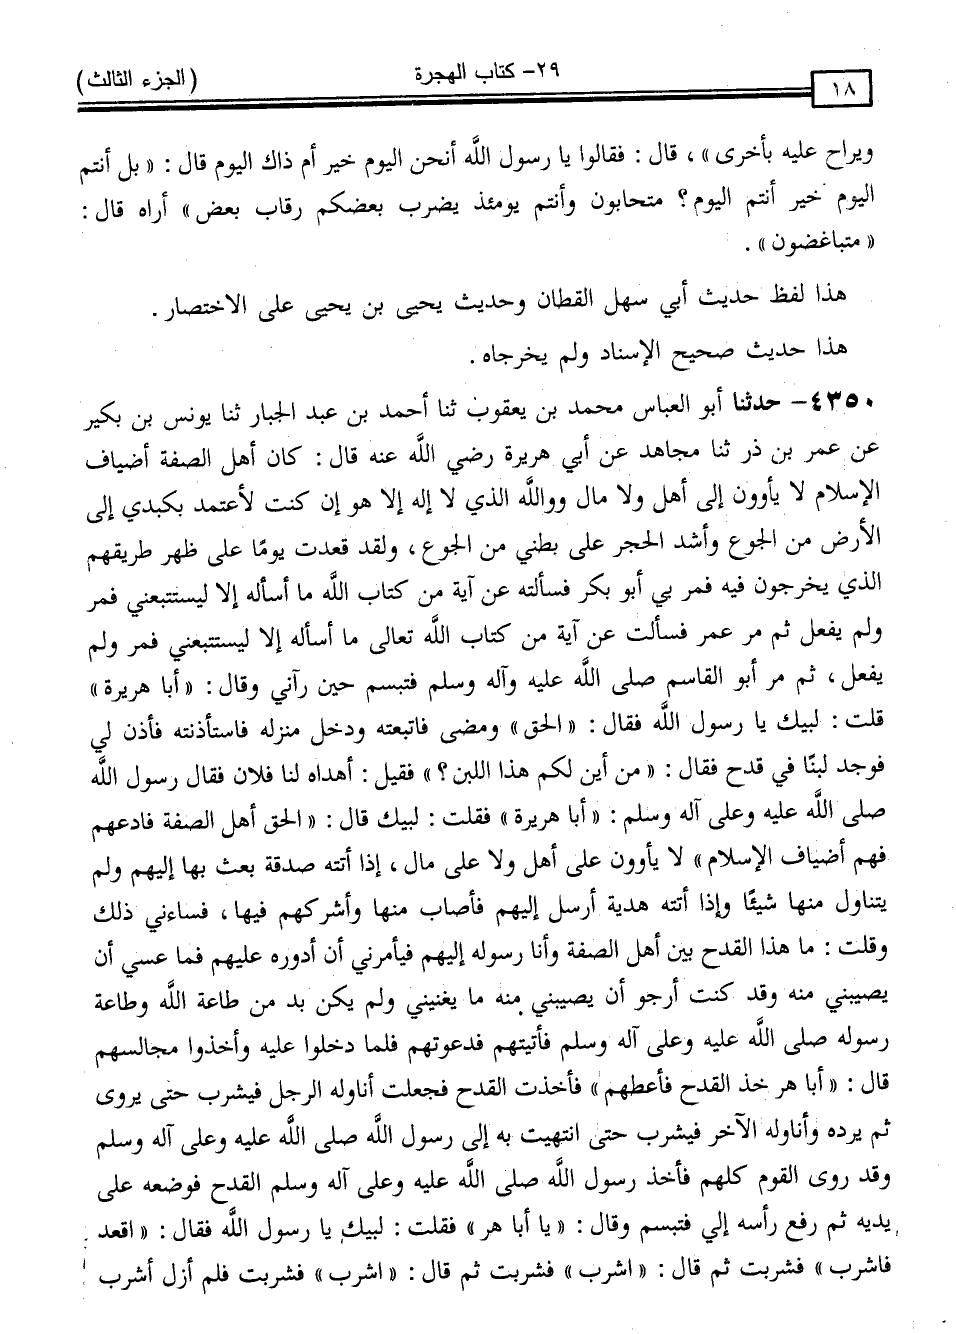 ١٨
٢٩- كتاب الهجرة
(الجزء الثالث)
ويراح عليه بأخرى» ، قال : فقالوا يا رسول الله أنحن اليوم خير أم ذاك اليوم قال : « بل أنتم
اليوم خير أنتم اليوم؟ متحابون وأنتم يومئذ يضرب بعضكم رقاب بعض» أراه قال :
« متباغضون» .
هذا لفظ حديث أبي سهل القطان وحديث يحيى بن يحيى على الاختصار .
هذا حديث صحيح الإسناد ولم يخرجاه .
٤٣٥٠- حدثنا أبو العباس محمد بن يعقوب ثنا أحمد بن عبد الجبار ثنا يونس بن بكير
عن عمر بن ذر ثنا مجاهد عن أبي هريرة رضي الله عنه قال : كان أهل الصفة أضياف
الإسلام لا يأوون إلى أهل ولا مال ووالله الذي لا إله إلا هو إن كنت لأعتمد بكبدي إلى
الأرض من الجوع وأشد الحجر على بطني من الجوع ، ولقد قعدت يومًا على ظهر طريقهم
الذي يخرجون فيه فمر بي أبو بكر فسألته عن آية من كتاب الله ما أسأله إلا ليستتبعني فمر
ولم يفعل ثم مر عمر فسألت عن آية من كتاب الله تعالى ما أسأله إلا ليستتبعني فمر ولم
يفعل ، ثم مر أبو القاسم صلى الله عليه وآله وسلم فتبسم حين رآني وقال : « أبا هريرة »
قلت : لبيك يا رسول الله فقال : « الحق » ومضى فاتبعته ودخل منزله فاستأذنته فأذن لي
فوجد لبنًا في قدح فقال : « من أين لكم هذا اللبن ؟ » فقيل : أهداه لنا فلان فقال رسول الله
صلى الله عليه وعلى آله وسلم : « أبا هريرة » فقلت : لبيك قال : « الحق أهل الصفة فادعهم
فهم أضياف الإسلام » لا يأوون على أهل ولا على مال ، إذا أتته صدقة بعث بها إليهم ولم
يتناول منها شيئًا وإذا أتته هدية أرسل إليهم فأصاب منها وأشركهم فيها ، فساءني ذلك
وقلت : ما هذا القدح بين أهل الصفة وأنا رسوله إليهم فيأمرني أن أدوره عليهم فما عسي أن
يصيبني منه وقد كنت أرجو أن يصيبني منه ما يغنيني ولم يكن بد من طاعة الله وطاعة
رسوله صلى الله عليه وعلى آله وسلم فأتيتهم فدعوتهم فلما دخلوا عليه وأخذوا مجالسهم
قال : « أبا هر خذ القدح فأعطهم » فأخذت القدح فجعلت أناوله الرجل فيشرب حتى يروى
ثم يرده وأناوله الآخر فيشرب حتى انتهيت به إلى رسول الله صلى الله عليه وعلى آله وسلم
وقد روى القوم كلهم فأخذ رسول الله صلى الله عليه وعلى آله وسلم القدح فوضعه على
يديه ثم رفع رأسه إلي فتبسم وقال : « يا أبا هر » فقلت : لبيك يا رسول الله فقال : « اقعد
فاشرب » فشربت ثم قال : « اشرب » فشربت ثم قال : « اشرب » فشربت فلم أزل أشرب